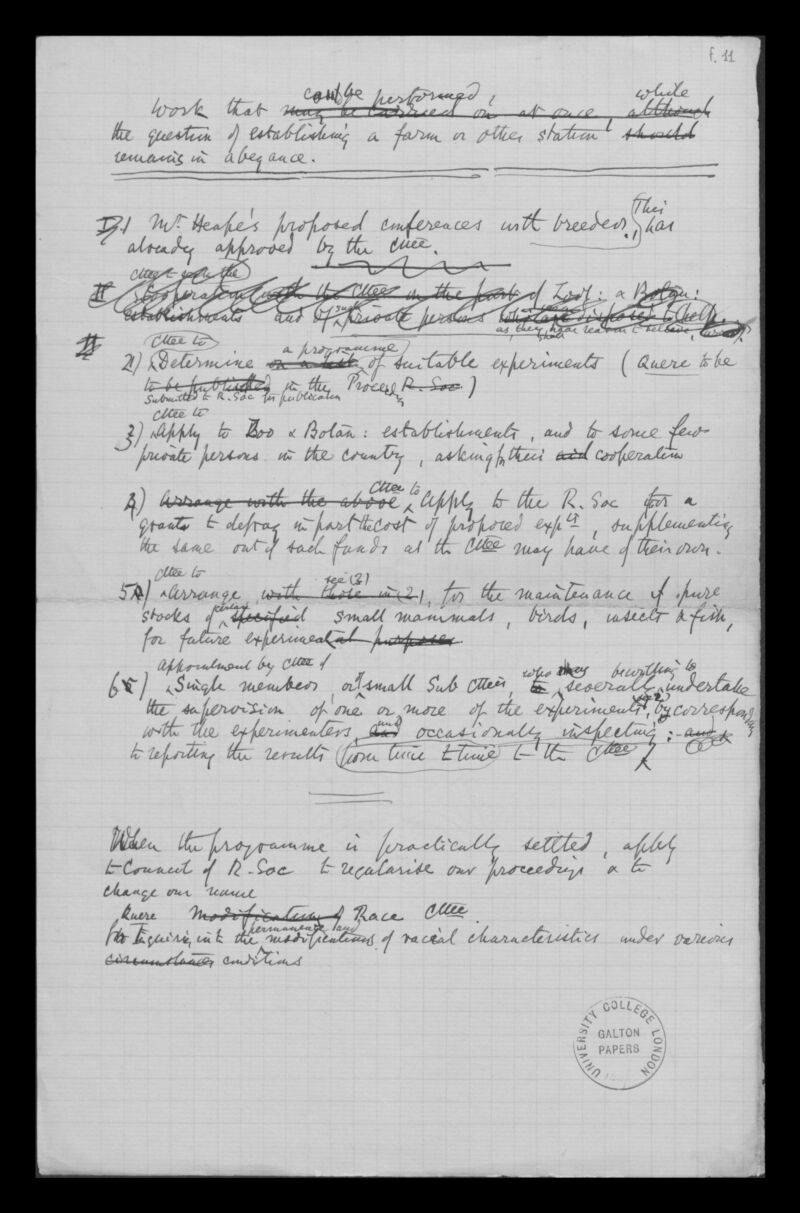 f. 11
can be performed, while
Work that may be carried on at once, although
the question of establishing a farm or other station should
remains in abeyance.
I 1 Mr. Heape's proposed conferences with breeders. (This has
already approved by the Cttee.
II Cooperation with the Cttee on the part of Zool: & Botan:
establishments and of such private persons who are disposed to help.
as they have reason to believe
II Cttee to a programme
2) Determine on a list of suitable experiments (Quere to be
to be published in the Proceedgs R. Soc)
submitted to R. Soc for publication
Cttee to
3) Apply to Zoo & Botan: establishments, and to some few
private persons in the country, asking for their aid cooperation
4) Arrange with the above Cttee to Apply to the R. Soc for a
grant to defray in part the cost of proposed expts, supplementing
the same out of such funds as the Cttee may have of their own.
Cttee to see (3)
5) Arrange with those in (2), for the maintenance of pure
stocks of certain specified small mammals, birds, insects & fish,
for future experimental purposes
appointment by Cttee of
6) Single members, or of small Sub Cttees, who may be willing to
to severally undertake
the supervision of one or more of the experiments, by corresponding
with the experimenters, and occasionally inspecting: and
to reporting the results from time to time to the Cttee
When the programme is practically settled, apply
to Council of R. Soc to regularise our proceedings & to
change our name
Quere Modification of Race Cttee.
for Inquiring into the permanence and modifications of racial characteristics under various
circumstances conditions
UNIVERSITY COLLEGE LONDON
GALTON
PAPERS